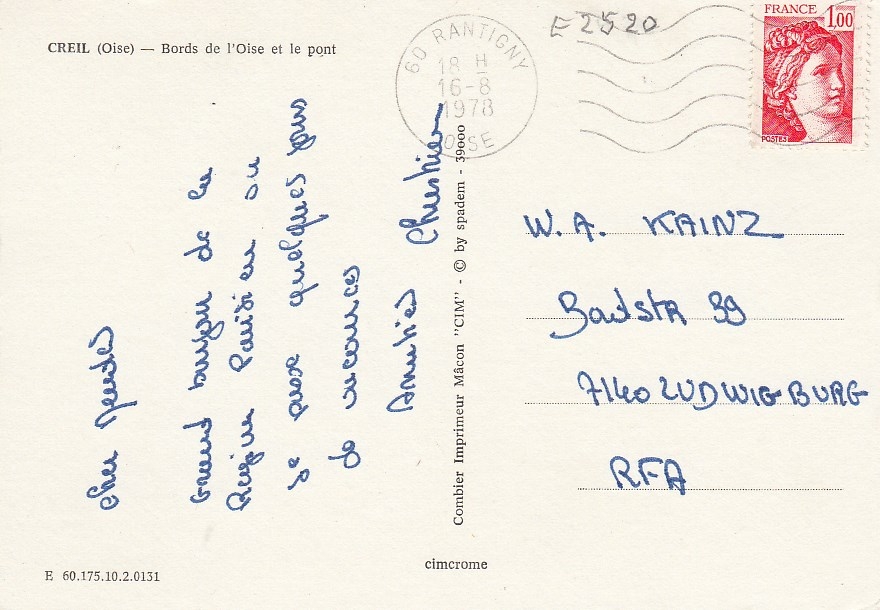 CREIL (Oise) — Bords de l'Oise et le pont
60 RANTIGNY
18 H
16-8
1978
OISE
E 2520
FRANCE 1,00
POSTES
Cher
Grand bonjour de la
Région Parisienne ou
je passe quelques jours
de vacances
Amitiés Christian
Combier Imprimeur Mâcon "CIM" - © by spadem - 39000
W. A. KAINZ
39
7140 LUDWIGBURG
RFA
cimcrome
E 60.175.10.2.0131